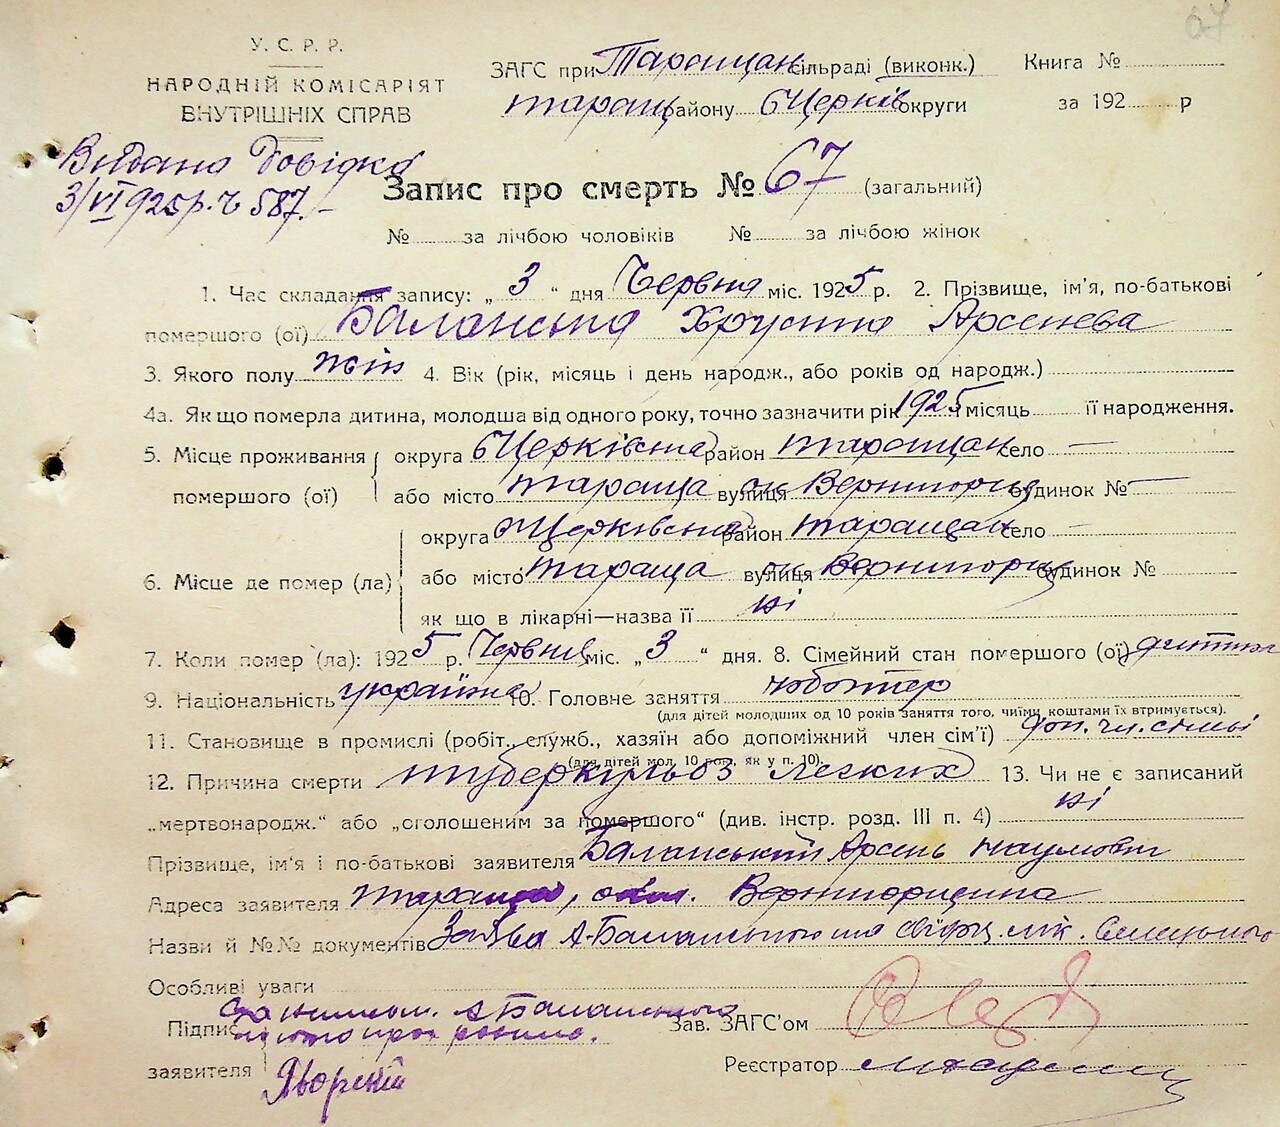 67
У. С. Р. Р.
НАРОДНІЙ КОМІСАРІЯТ
ВНУТРІШНІХ СПРАВ
ЗАГС при Таращан. сільраді (виконк.) Книга №
таращ району бЦерків округи за 192 р
Видано Довідка
3/VI 925 р. ч 587.-
Запис про смерть № 67 (загальний)
№ за лічбою чоловіків № за лічбою жінок
1. Час складання запису: „ 3 “ дня Червня міс. 1925 р. 2. Прізвище, ім'я, по-батькові
помершого (ої) Баланська Христя Арсенева
3. Якого полу жін 4. Вік (рік, місяць і день народж., або років од народж.)
4а. Як що померла дитина, молодша від одного року, точно зазначити рік 1925 місяць її народження.
5. Місце проживання помершого (ої) округа бЦерківська район таращан село —
або місто тараща вулиця будинок № —
6. Місце де помер (ла) округа бЦерківська район таращан село —
або місто тараща вулиця будинок №
як що в лікарні—назва її ні
7. Коли помер (ла): 1925 р. Червня міс. „ 3 “ дня. 8. Сімейний стан помершого (ої) дитина
9. Національність україн 10. Головне заняття чоботар
(для дітей молодших од 10 років заняття того, чиїми коштами їх втримується).
11. Становище в промислі (робіт., служб., хазяїн або допоміжний член сім'ї) доп. чл. сімьі
(для дітей мол. 10 рок. як у п. 10).
12. Причина смерти туберкульоз легких 13. Чи не є записаний
„мертвонародж.“ або „оголошеним за помершого“ (див. інстр. розд. III п. 4) ні
Прізвище, ім'я і по-батькові заявителя Баланський Арсень Наумович
Адреса заявителя Тараща,
Назви й №№ документів Заява А. Баланського та лік.
Особливі уваги
А Баланського
Підпис
заявителя Яворскій
Зав. ЗАГС'ом
Реєстратор